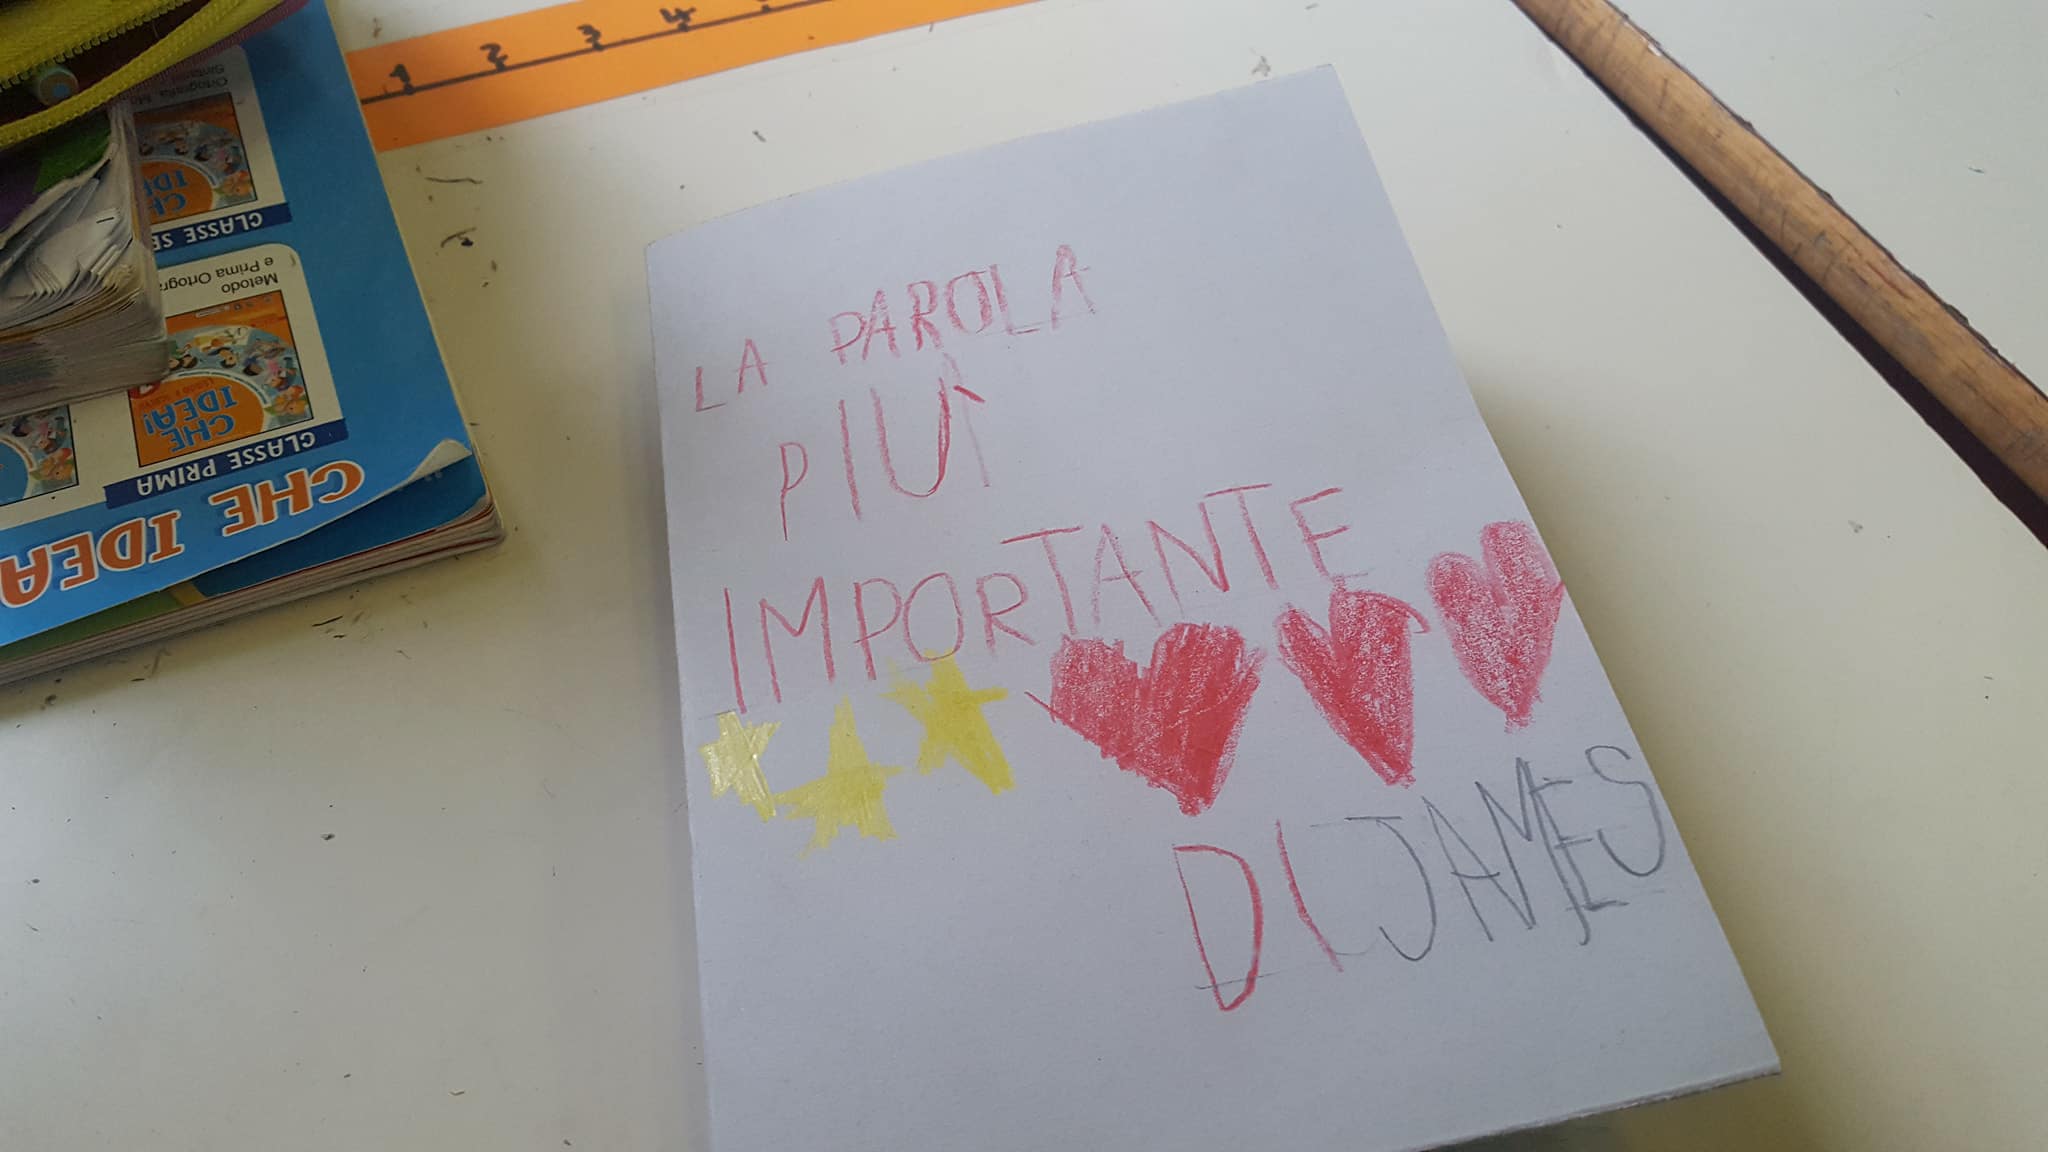 LA PAROLA
PIÙ
IMPORTANTE
DI JAMES
1 2 3 4
CHE IDEA
CLASSE PRIMA
CHE
IDEA!
Metodo
e Prima
CLASSE
CHE